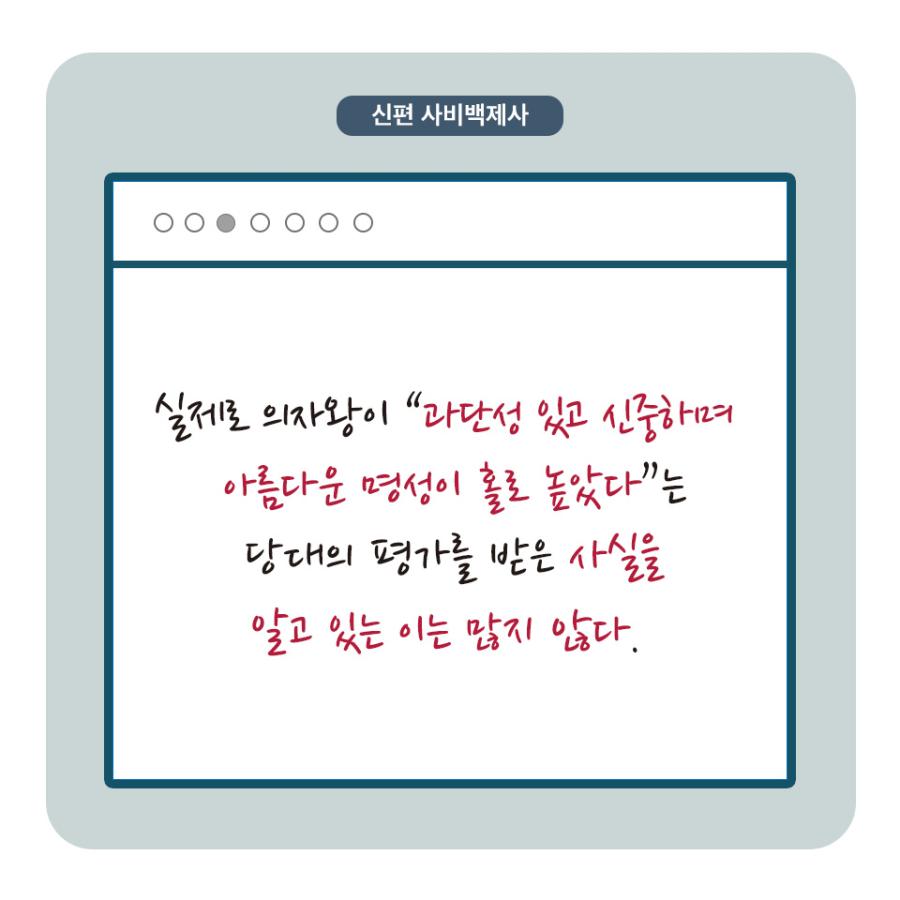 신편 사비백제사
실제로 의자왕이 “과단성 있고 신중하며
아름다운 명성이 홀로 높았다”는
당대의 평가를 받은 사실을
알고 있는 이는 많지 않다.